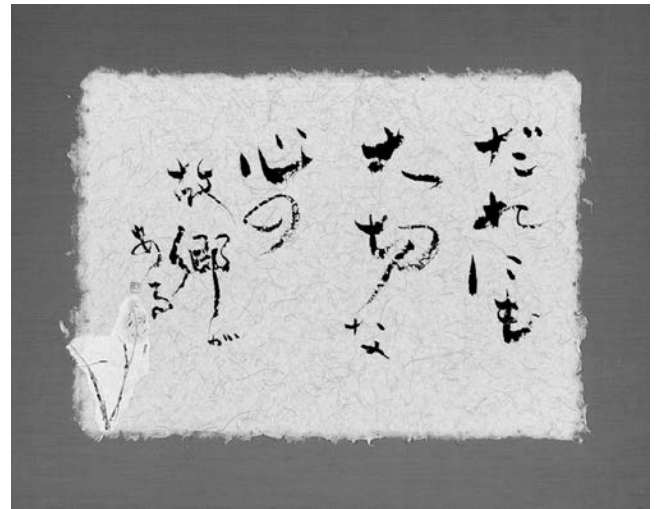 だれにも
大切な
心の
故郷が
ある